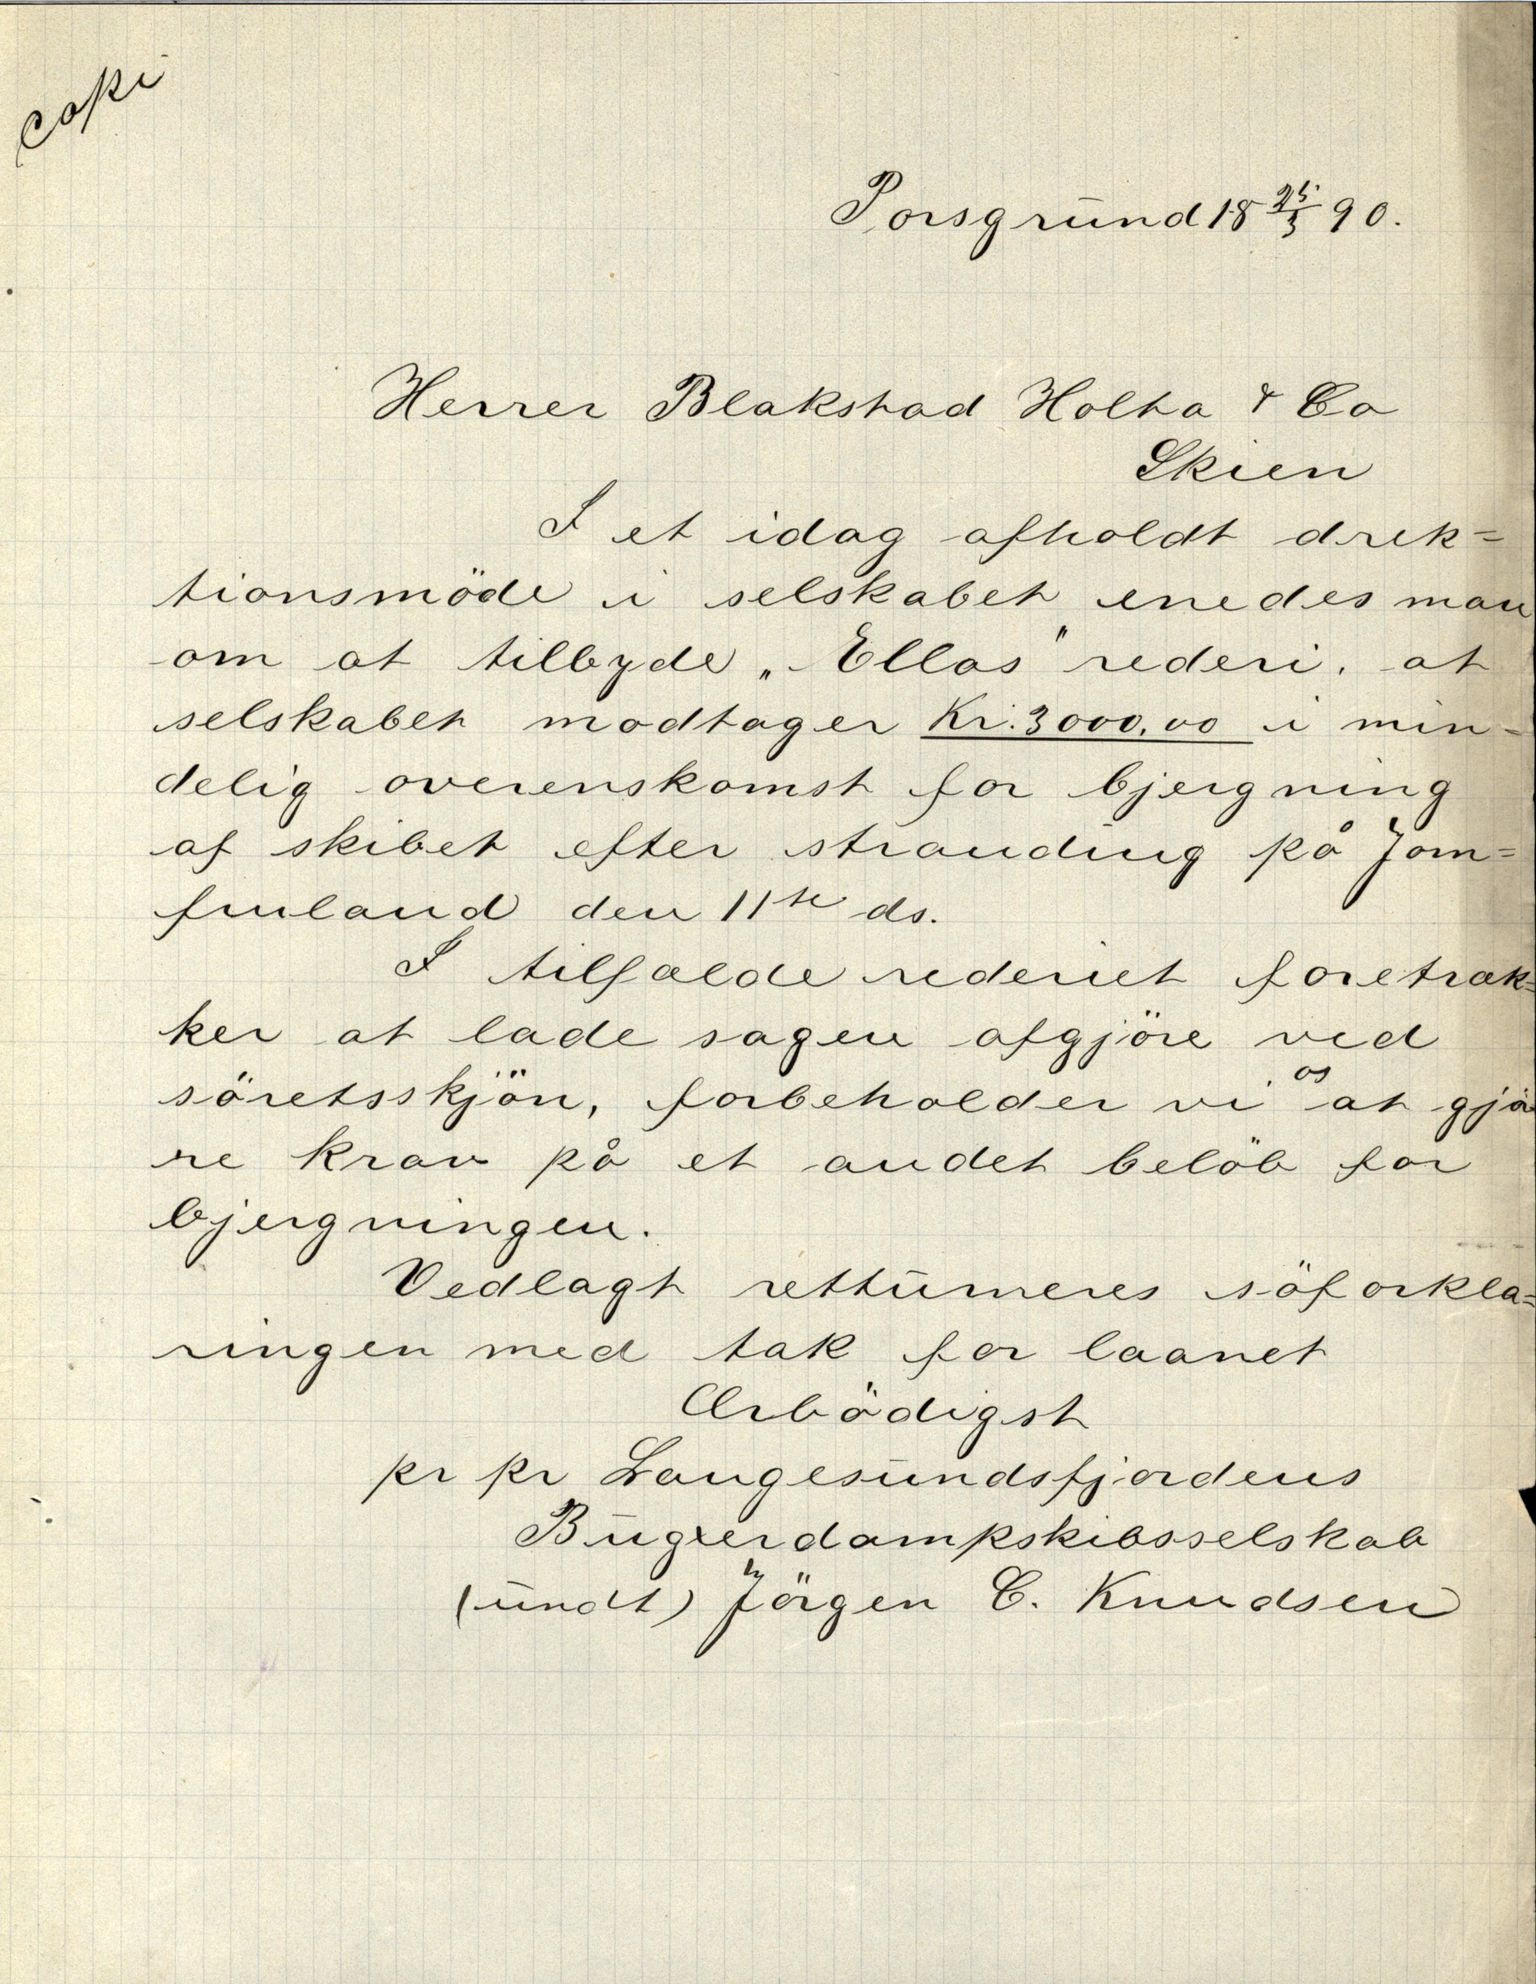 copi
Porsgrund 18 25/3 90.
Herrer Blakstad Holta & Co
Skien
I et idag afholdt drek=
tionsmöde i selskabet enedes man
om at tilbyde „Ellas" rederi, at
selskabet modtager Kr. 3000,00 i min-
delig overenskomst for bjergning
af skibet efter stranding på Jom=
fruland den 11te ds.
I tilfælde rederiet foretræk=
ker at lade sagen afgjöre ved
söretsskjön, forbeholder vi os at gjö
re krav på et andet belöb for
bjergningen.
Vedlagt retturneres söforkla=
ringen med tak for laanet
Ærbödigst
pr pr Langesundsfjordens
Bugserdampskibsselskab
(undt) Jörgen C. Knudsen